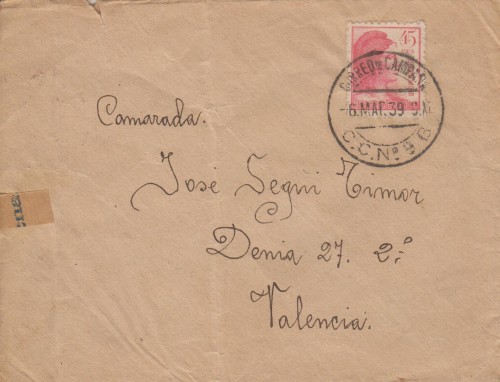 45
CORREO DE CAMPAÑA
-6.MAR.39
C.C.Nº 9 B
Camarada.
José Seguí Timor
Denia 27. 2.º
Valencia.